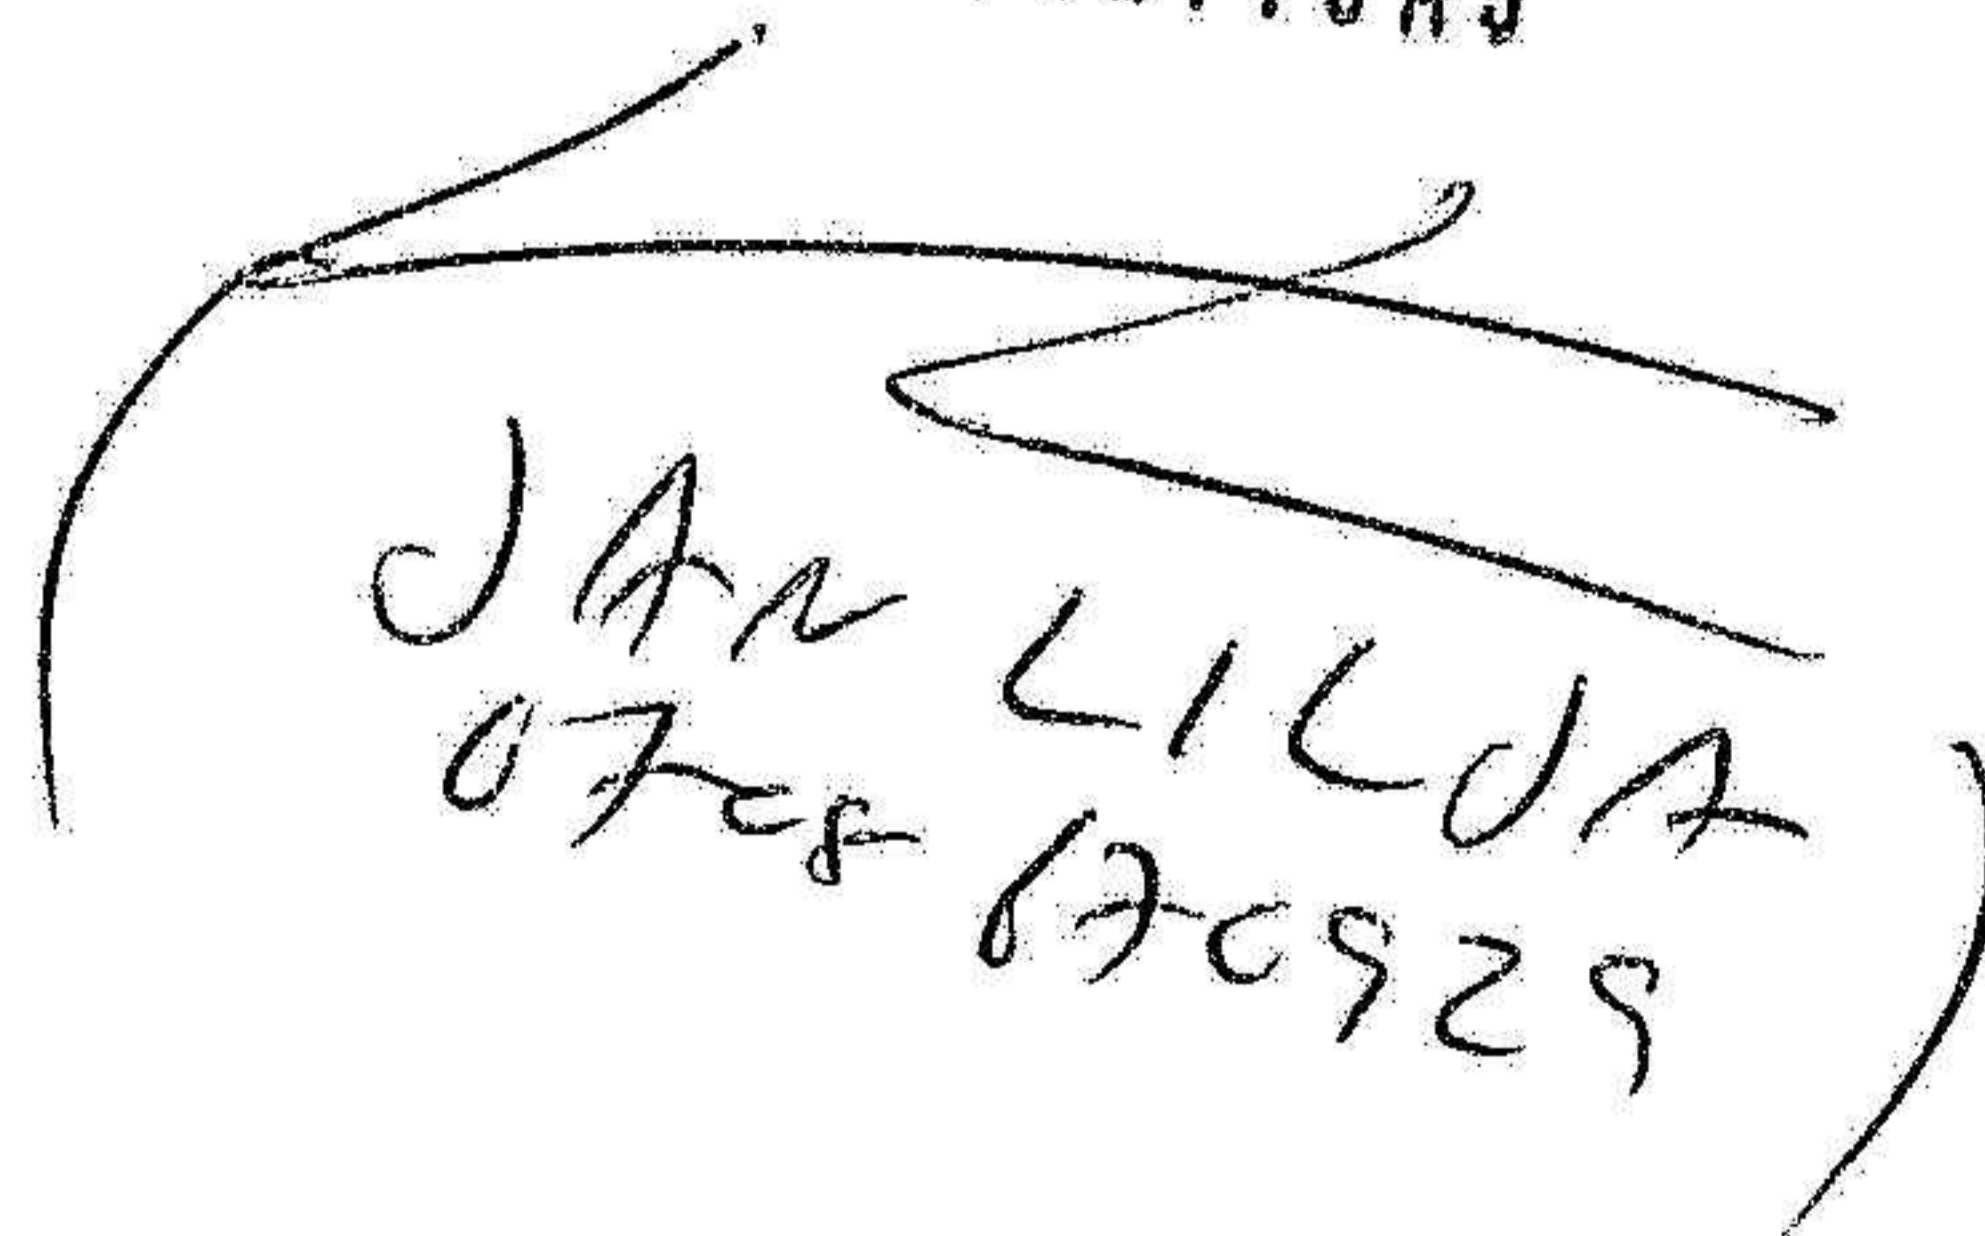 JAN LILJA
0708 670929